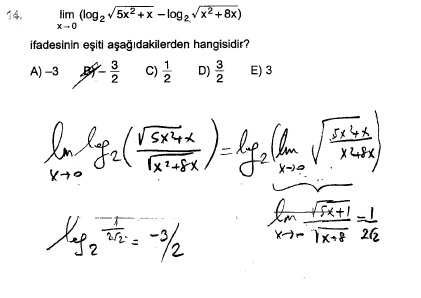 14. lim x→0 (log₂√(5x²+x) − log₂√(x²+8x))
ifadesinin eşiti aşağıdakilerden hangisidir?
A) −3 B) −3/2 C) 1/2 D) 3/2 E) 3
lim x→0 log₂(√(5x²+x)/√(x²+8x)) = log₂(lim x→0 √((5x²+x)/(x²+8x)))
log₂ 1/2√2 = −3/2 lim x→ √(5x+1)/√(x+8) = 1/2√2